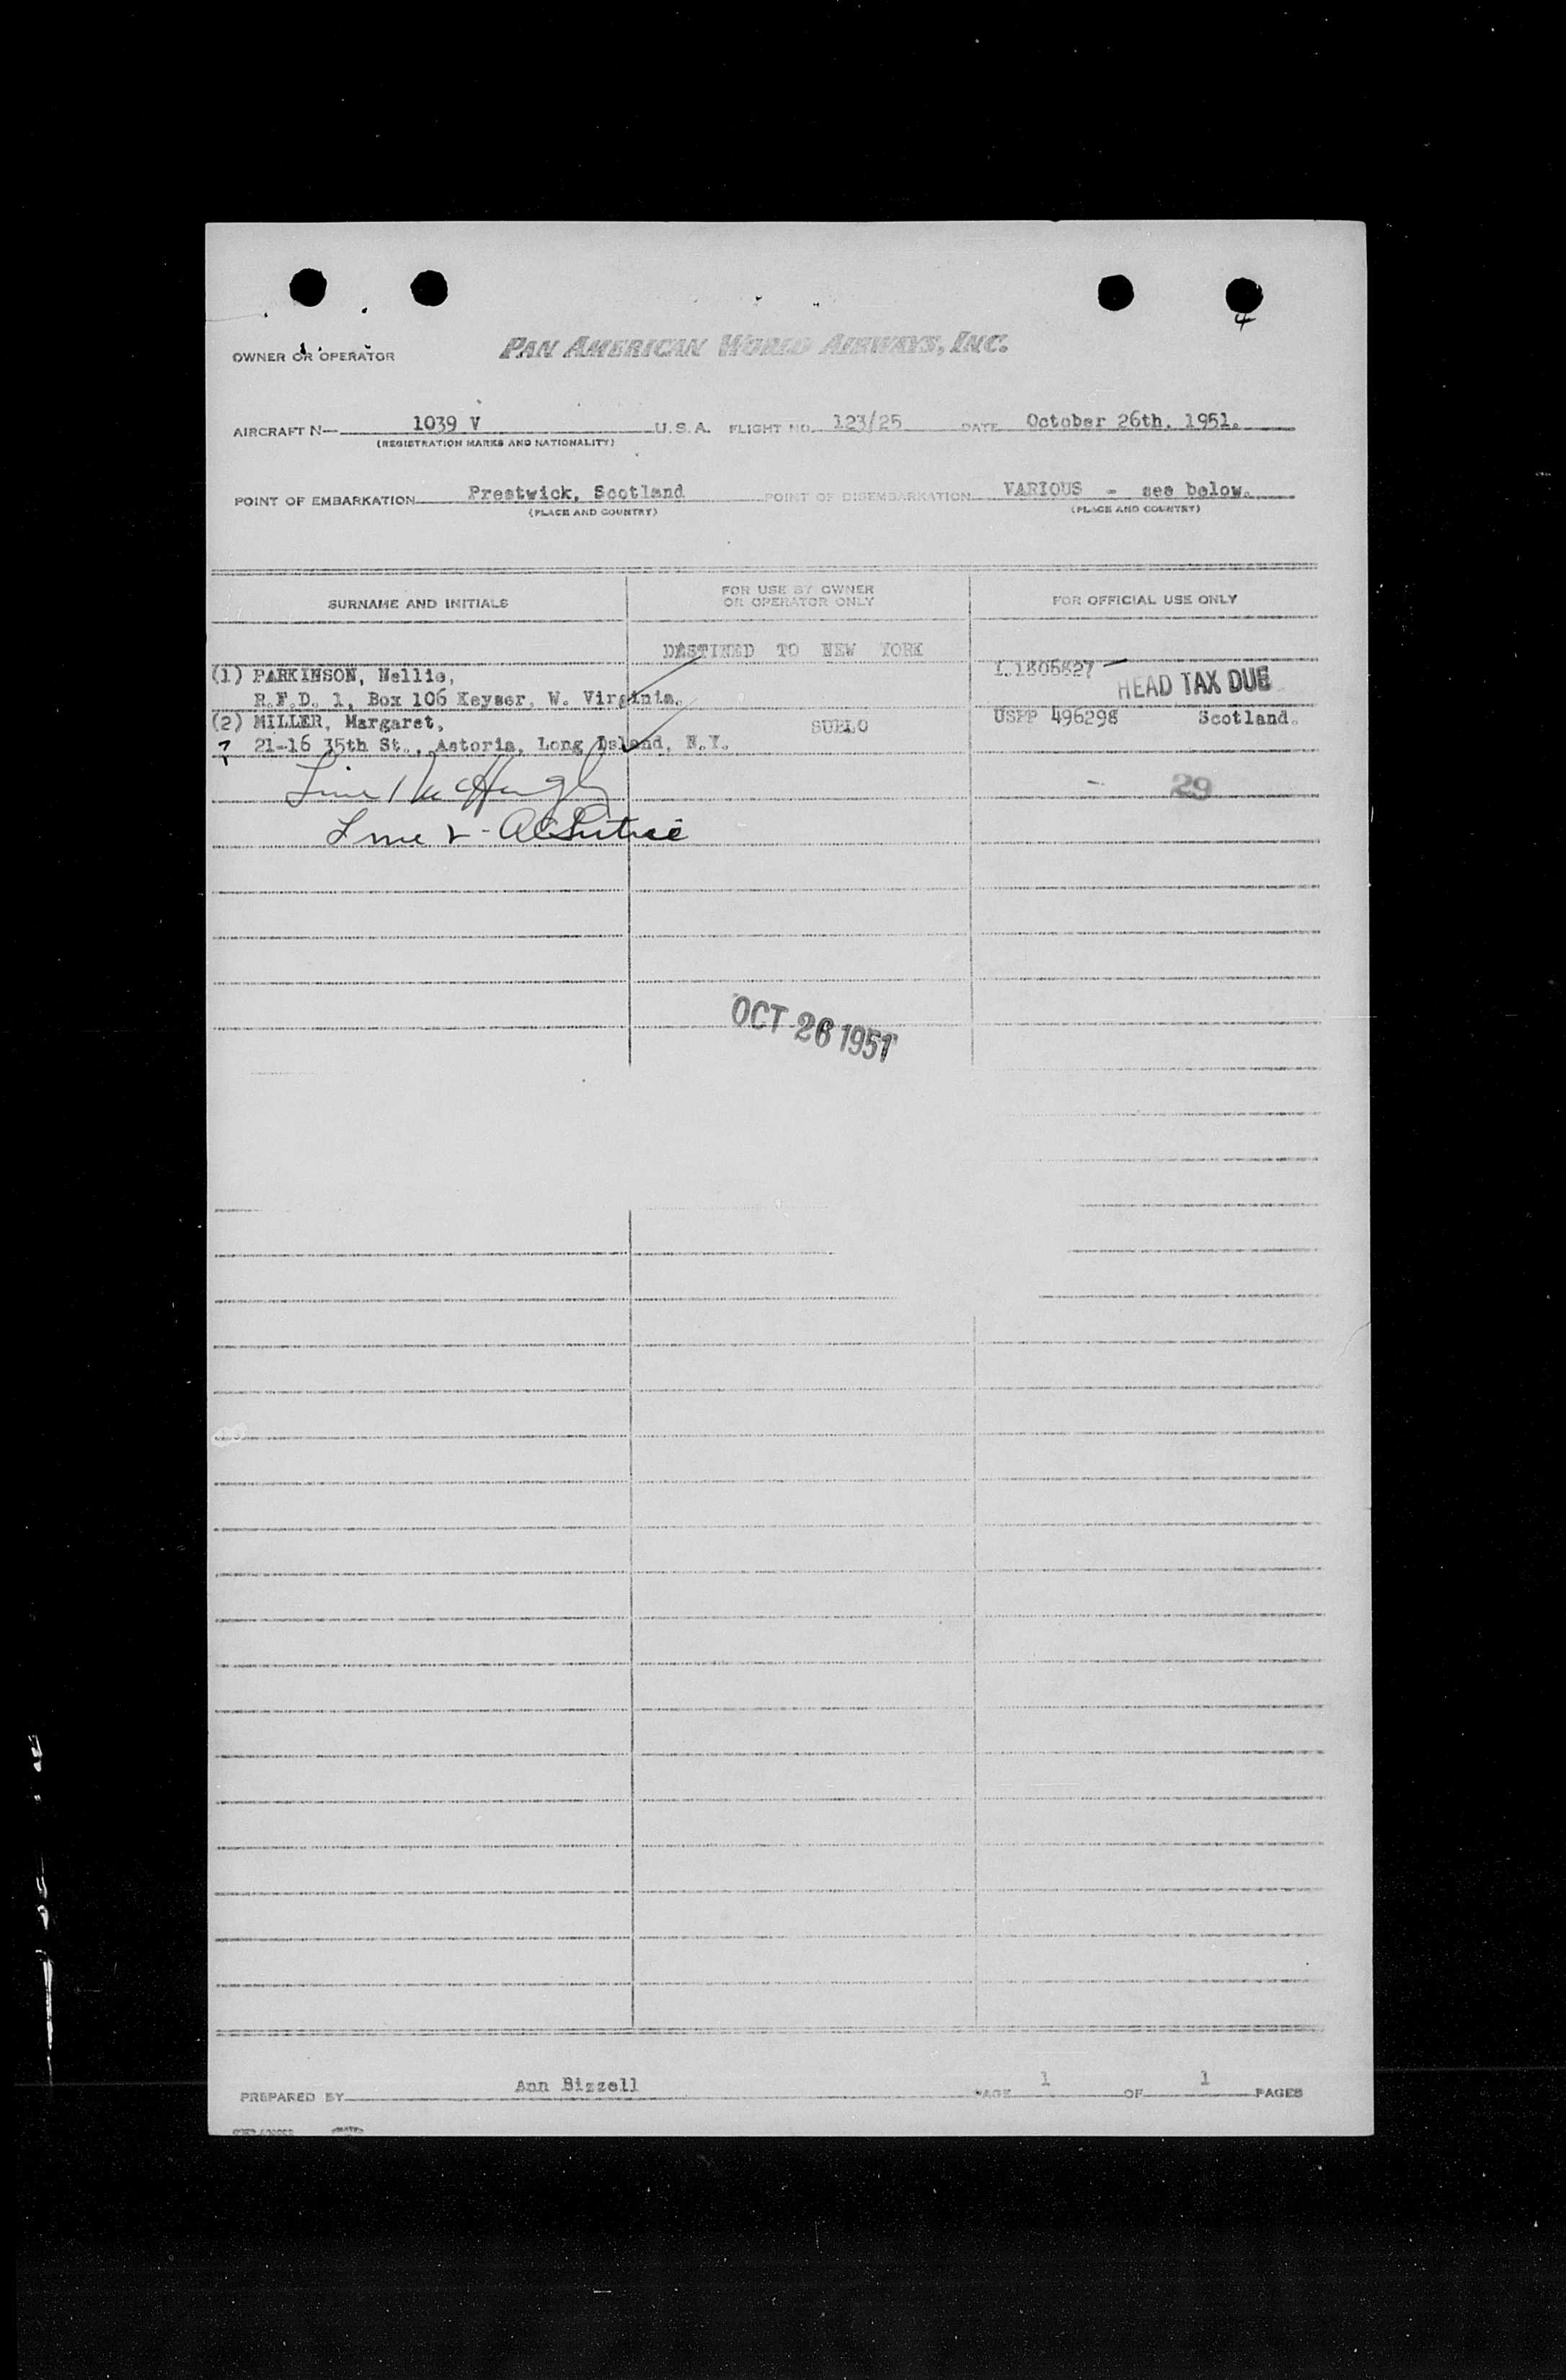 4
OWNER OR OPERATOR PAN AMERICAN WORLD AIRWAYS, INC.
AIRCRAFT N— 1039 V U.S.A. FLIGHT NO. 123/25 DATE October 26th, 1951.
(REGISTRATION MARKS AND NATIONALITY)
POINT OF EMBARKATION Prestwick, Scotland POINT OF DISEMBARKATION VARIOUS - see below.
(PLACE AND COUNTRY) (PLACE AND COUNTRY)
SURNAME AND INITIALS FOR USE BY OWNER OR OPERATOR ONLY FOR OFFICIAL USE ONLY
DESTINED TO NEW YORK
(1) PARKINSON, Nellie, HEAD TAX DUE
R.F.D. 1, Box 106 Keyser, W. Virginia.
(2) MILLER, Margaret, SUBLO USPP 496298 Scotland.
21-16 35th St., Astoria, Long Island, N.Y.
Line 1 McHugh 29
Line 2 -
OCT 26 1951
PREPARED BY Ann Bizzell PAGE 1 OF 1 PAGES